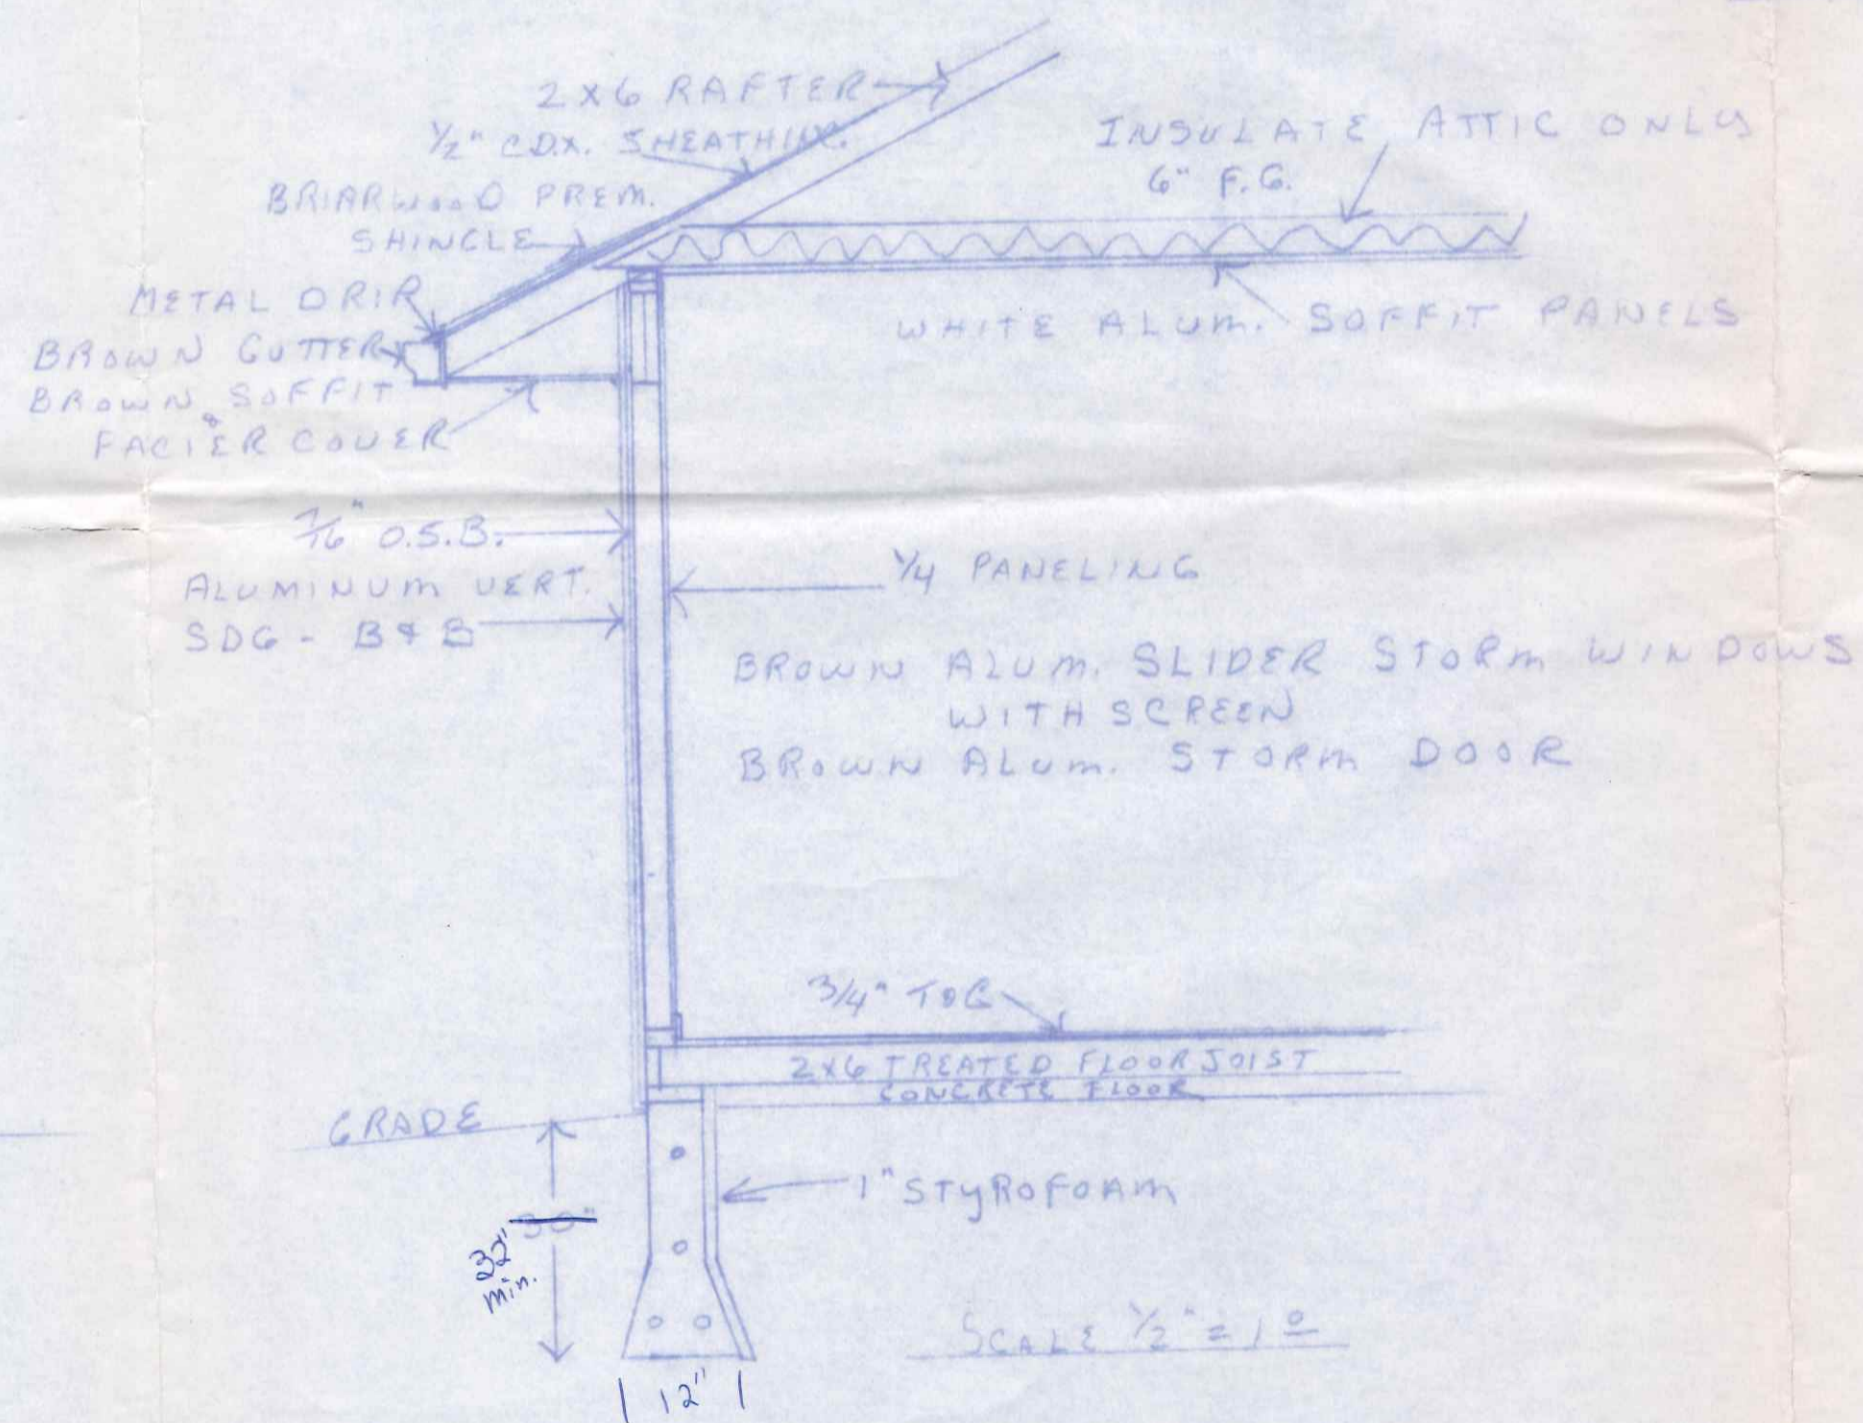 2 X 6 RAFTER
1/2" C.D.X. SHEATHING.
BRIARWOOD PREM.
SHINGLE
INSULATE ATTIC ONLY
6" F.G.
METAL DRIP
BROWN GUTTER
BROWN SOFFIT
&
FACIER COVER
WHITE ALUM. SOFFIT PANELS
7/16" O.S.B.
ALUMINUM VERT.
SDG - B & B
1/4 PANELING
BROWN ALUM. SLIDER STORM WINDOWS
WITH SCREEN
BROWN ALUM. STORM DOOR
3/4" T&G
2X6 TREATED FLOOR JOIST
CONCRETE FLOOR
GRADE
1" STYROFOAM
30"
32"
min.
SCALE 1/2" = 1 0
12"